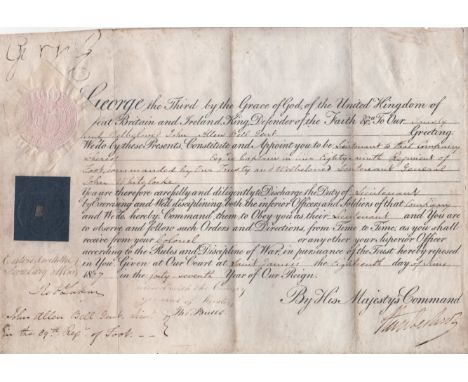 George R
George the Third by the Grace of God, of the United Kingdom of
Great Britain and Ireland, King, Defender of the Faith &c. To Our Trusty
and Wellbeloved John Allen Bell Gent Greeting
We do by these Presents, Constitute and Appoint you to be Lieutenant to that company
whereof Esq. is Captain in our Eighty ninth Regiment of
Foot commanded by Our Trusty and Wellbeloved Lieutenant General
John Whitelocke
You are therefore carefully and diligently to Discharge the Duty of Lieutenant
by Exercising and Well disciplining both the inferior Officers and Soldiers of that Company
and We do hereby Command them to Obey you as their Lieutenant and You are
to observe and follow such Orders and Directions, from Time to Time, as you shall
receive from your Colonel or any other your Superior Officer
according to the Rules and Discipline of War, in pursuance of the Trust hereby reposed
in You Given at Our Court at Saint James's the Eighteenth day of June
1807 in the forty seventh Year of Our Reign.
By His Majesty's Command
Entered with the
Secretary at War
John Allen Bell Gent
in the 89th Regt of Foot